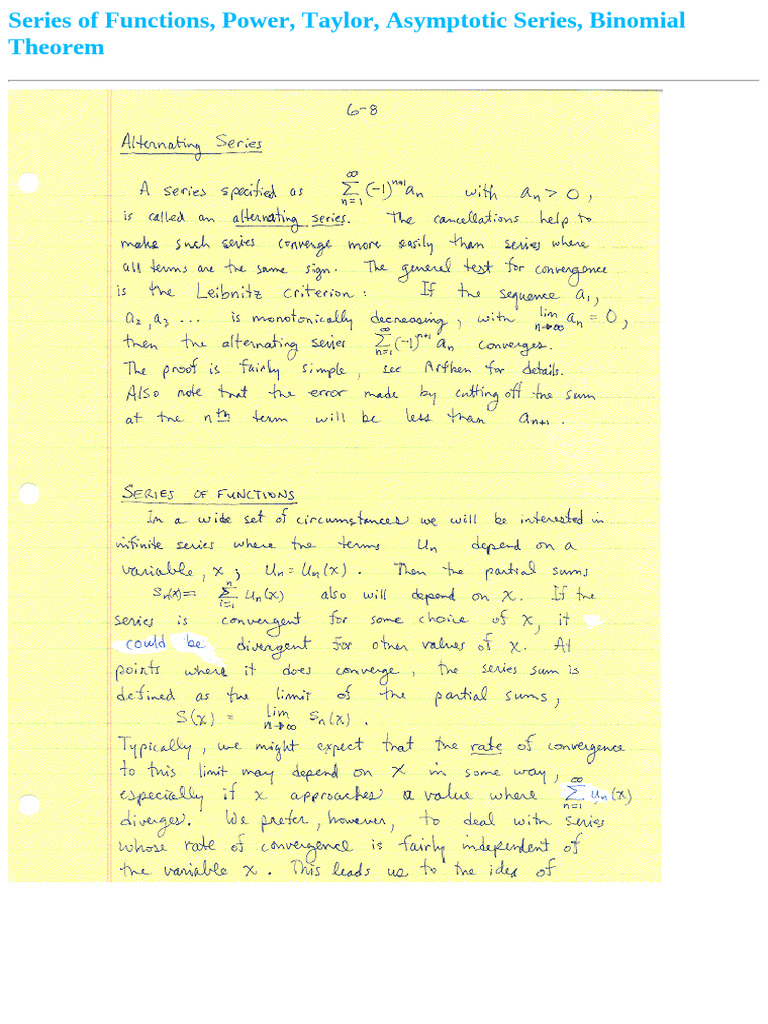 Series of Functions, Power, Taylor, Asymptotic Series, Binomial
Theorem
6-8
Alternating Series
A series specified as ∑_{n=1}^{∞} (-1)^{n+1} a_n with a_n > 0,
is called an alternating series. The cancellations help to
make such series converge more easily than series where
all terms are the same sign. The general test for convergence
is the Leibnitz criterion: If the sequence a_1,
a_2, a_3 ... is monotonically decreasing, with lim_{n→∞} a_n = 0,
then the alternating series ∑_{n=1}^{∞} (-1)^{n+1} a_n converges.
The proof is fairly simple, see Arfken for details.
Also note that the error made by cutting off the sum
at the nth term will be less than a_{n+1}.
SERIES OF FUNCTIONS
In a wide set of circumstances we will be interested in
infinite series where the terms u_n depend on a
variable, x; u_n = u_n(x). Then the partial sums
s_n(x) = ∑_{i=1}^{n} u_n(x) also will depend on x. If the
series is convergent for some choice of x, it
could be divergent for other values of x. At
points where it does converge, the series sum is
defined as the limit of the partial sums,
S(x) = lim_{n→∞} s_n(x).
Typically, we might expect that the rate of convergence
to this limit may depend on x in some way,
especially if x approaches a value where ∑_{n=1}^{∞} u_n(x)
diverges. We prefer, however, to deal with series
whose rate of convergence is fairly independent of
the variable x. This leads us to the idea of